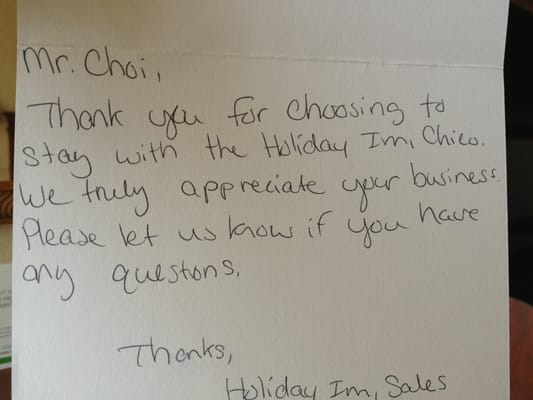 Mr. Choi,
Thank you for choosing to
stay with the Holiday Inn, Chico.
We truly appreciate your business.
Please let us know if you have
any questons.
Thanks,
Holiday Inn, Sales